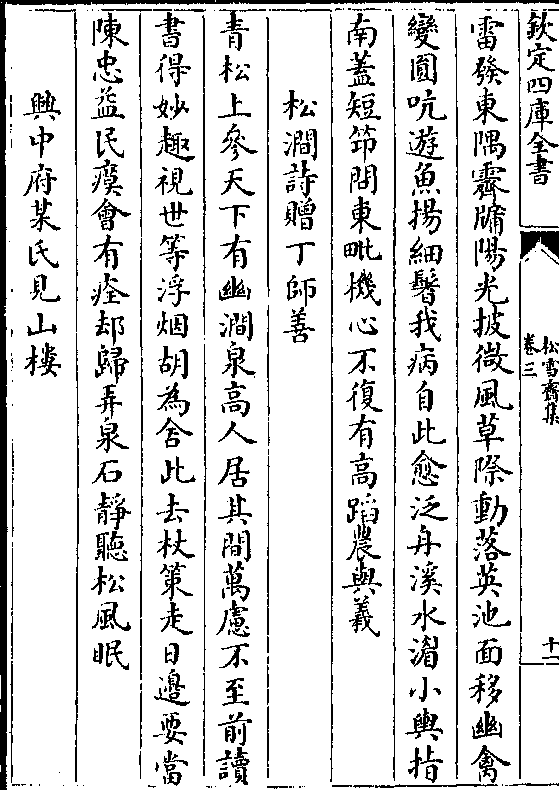 欽定四庫全書
松雪齋集
卷三
十一
雷發東隅霽牖陽光披微風草際動落英池面移幽禽
變圓吭遊魚揚細鬐我病自此愈泛舟溪水湄小輿指
南蓋短笻問東毗機心不復有高蹈農與羲
松澗詩贈丁師善
青松上參天下有幽澗泉高人居其間萬慮不至前讀
書得妙趣視世等浮烟胡為舍此去杖策走日邊要當
陳忠益民瘼會有痊却歸弄泉石靜聽松風眠
興中府某氏見山樓